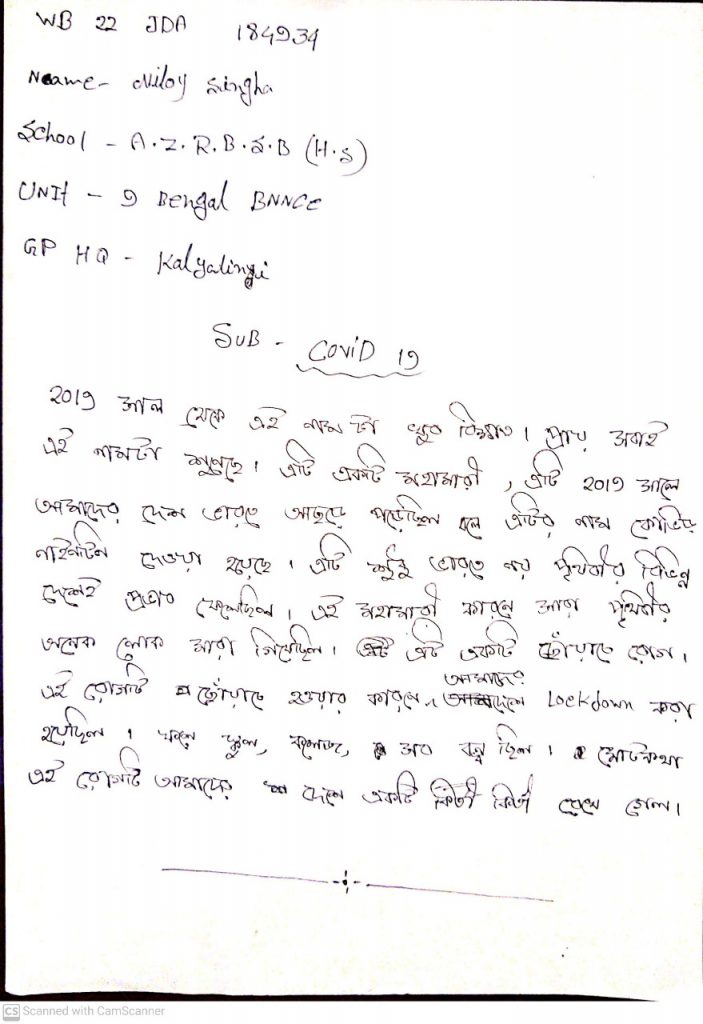 WB 22 JDA 184934
Name - Niloy Singha
School - A.Z.R.B.S.B (H.S)
UNIt - 9 Bengal BNNCC
GP HQ - Kalyalingi
SUB - COViD 19
2019 সাল থেকে এই নাম টা খুব বিখ্যাত। প্রায় সবাই
এই নামটা শুনছে। এটি একটি মহামারী, এটি 2019 সালে
আমাদের দেশ ভারতে আছড়ে পড়েছিল বলে এটির নাম কোভিড
নাইনটিন দেওয়া হয়েছে। এটি শুধু ভারতে নয় পৃথিবীর বিভিন্ন
দেশেই প্রভাব ফেলেছিল। এই মহামারী কারনে সারা পৃথিবীর
অনেক লোক মারা গিয়েছিল। এটি একটি ছোঁয়াচে রোগ।
এই রোগটি ছোঁয়াচে হওয়ার কারনে আমাদের দেশে Lockdown করা
হয়েছিল। ফলে স্কুল, কলেজ, সব বন্ধ ছিল। মোটকথা
এই রোগটি আমাদের দেশে একটি রেখে গেল।
Scanned with CamScanner